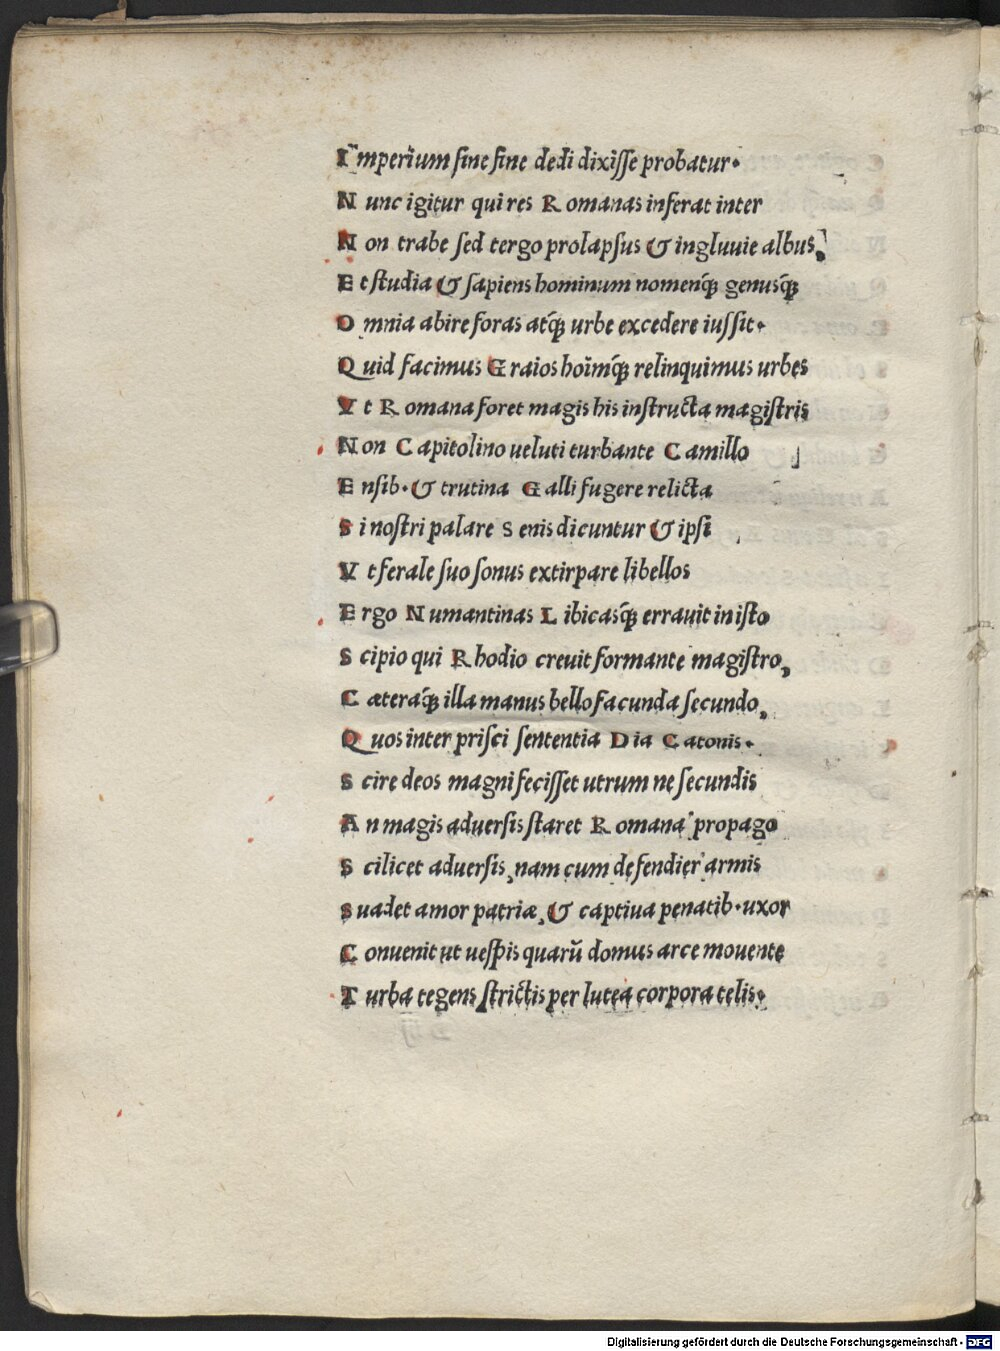 Imperium sine fine dedi dixisse probatur.
Nunc igitur qui res Romanas inferat inter
Non trabe sed tergo prolapsus & ingluuie albus,
Et studia & sapiens hominum nomenq́ꝫ genusq́ꝫ
Omnia abire foras atq́ꝫ urbe excedere iussit.
Quid facimus Graios hoīmq́ꝫ relinquimus urbes
Vt Romana foret magis his instructa magistris
Non Capitolino ueluti turbante Camillo
Ensib. & trutina Galli fugere relicta
Si nostri palare Senis dicuntur & ipsi
Vt ferale suo sonus extirpare libellos
Ergo Numantinas Libicasq́ꝫ errauit in isto
Scipio qui Rhodio creuit formante magistro,
Cæteraq́ꝫ illa manus bello facunda secundo,
Quos inter prisci sententia Dia Catonis.
Scire deos magni fecisset utrum ne secundis
An magis aduersis staret Romana propago
Scilicet aduersis, nam cum defendier armis
Suadet amor patriæ, & captiua penatib. uxor
Conuenit ut uesp̄is quarū domus arce mouente
Turba tegens strictis per lutea corpora telis.
Digitalisierung gefördert durch die Deutsche Forschungsgemeinschaft - DFG